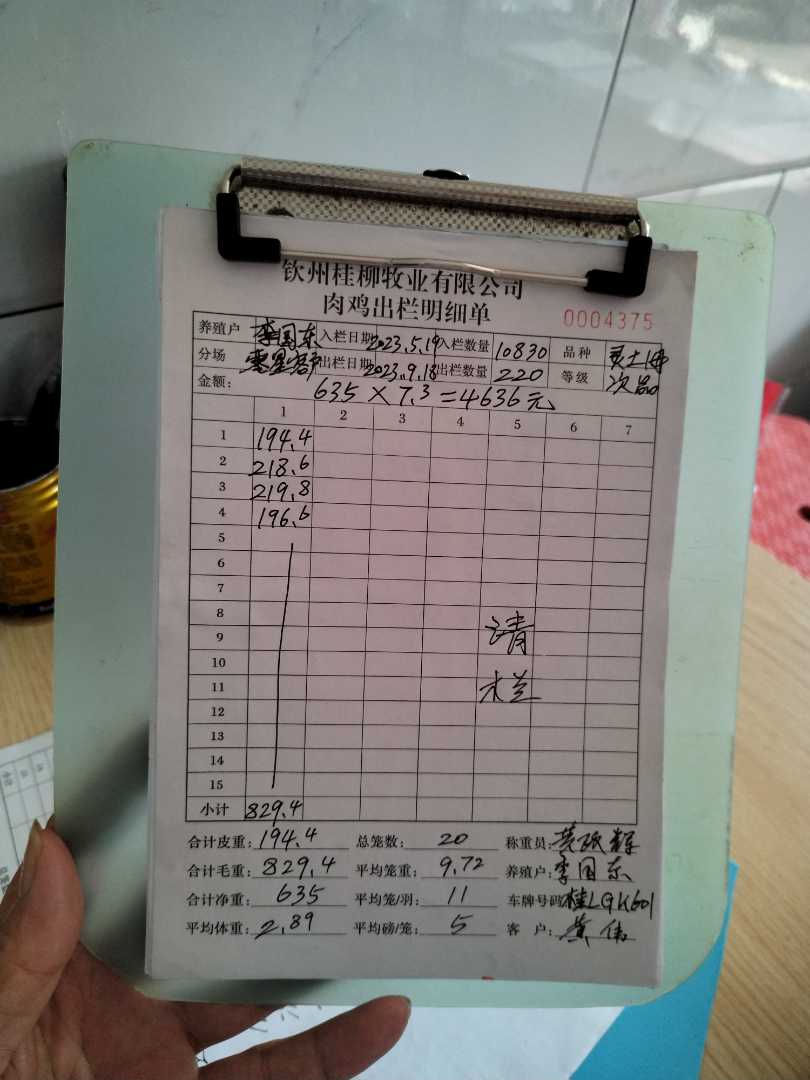 钦州桂柳牧业有限公司
肉鸡出栏明细单
0004375
养殖户 李国东 入栏日期 2023.5.19 入栏数量 10830 品种 灵土1号
分场 零星客户 出栏日期 2023.9.18 出栏数量 220 等级 次品
金额: 635×7.3=4636元
1 2 3 4 5 6 7
1 194.4
2 218.6
3 219.8
4 196.6
5
6
7
8
9 请
10
11 栏
12
13
14
15
小计 829.4
合计皮重: 194.4 总笼数: 20 称重员: 黄
合计毛重: 829.4 平均笼重: 9.72 养殖户: 李国东
合计净重: 635 平均笼/羽: 11 车牌号码 桂LGK601
平均体重: 2.89 平均磅/笼: 5 客户: 黄伟